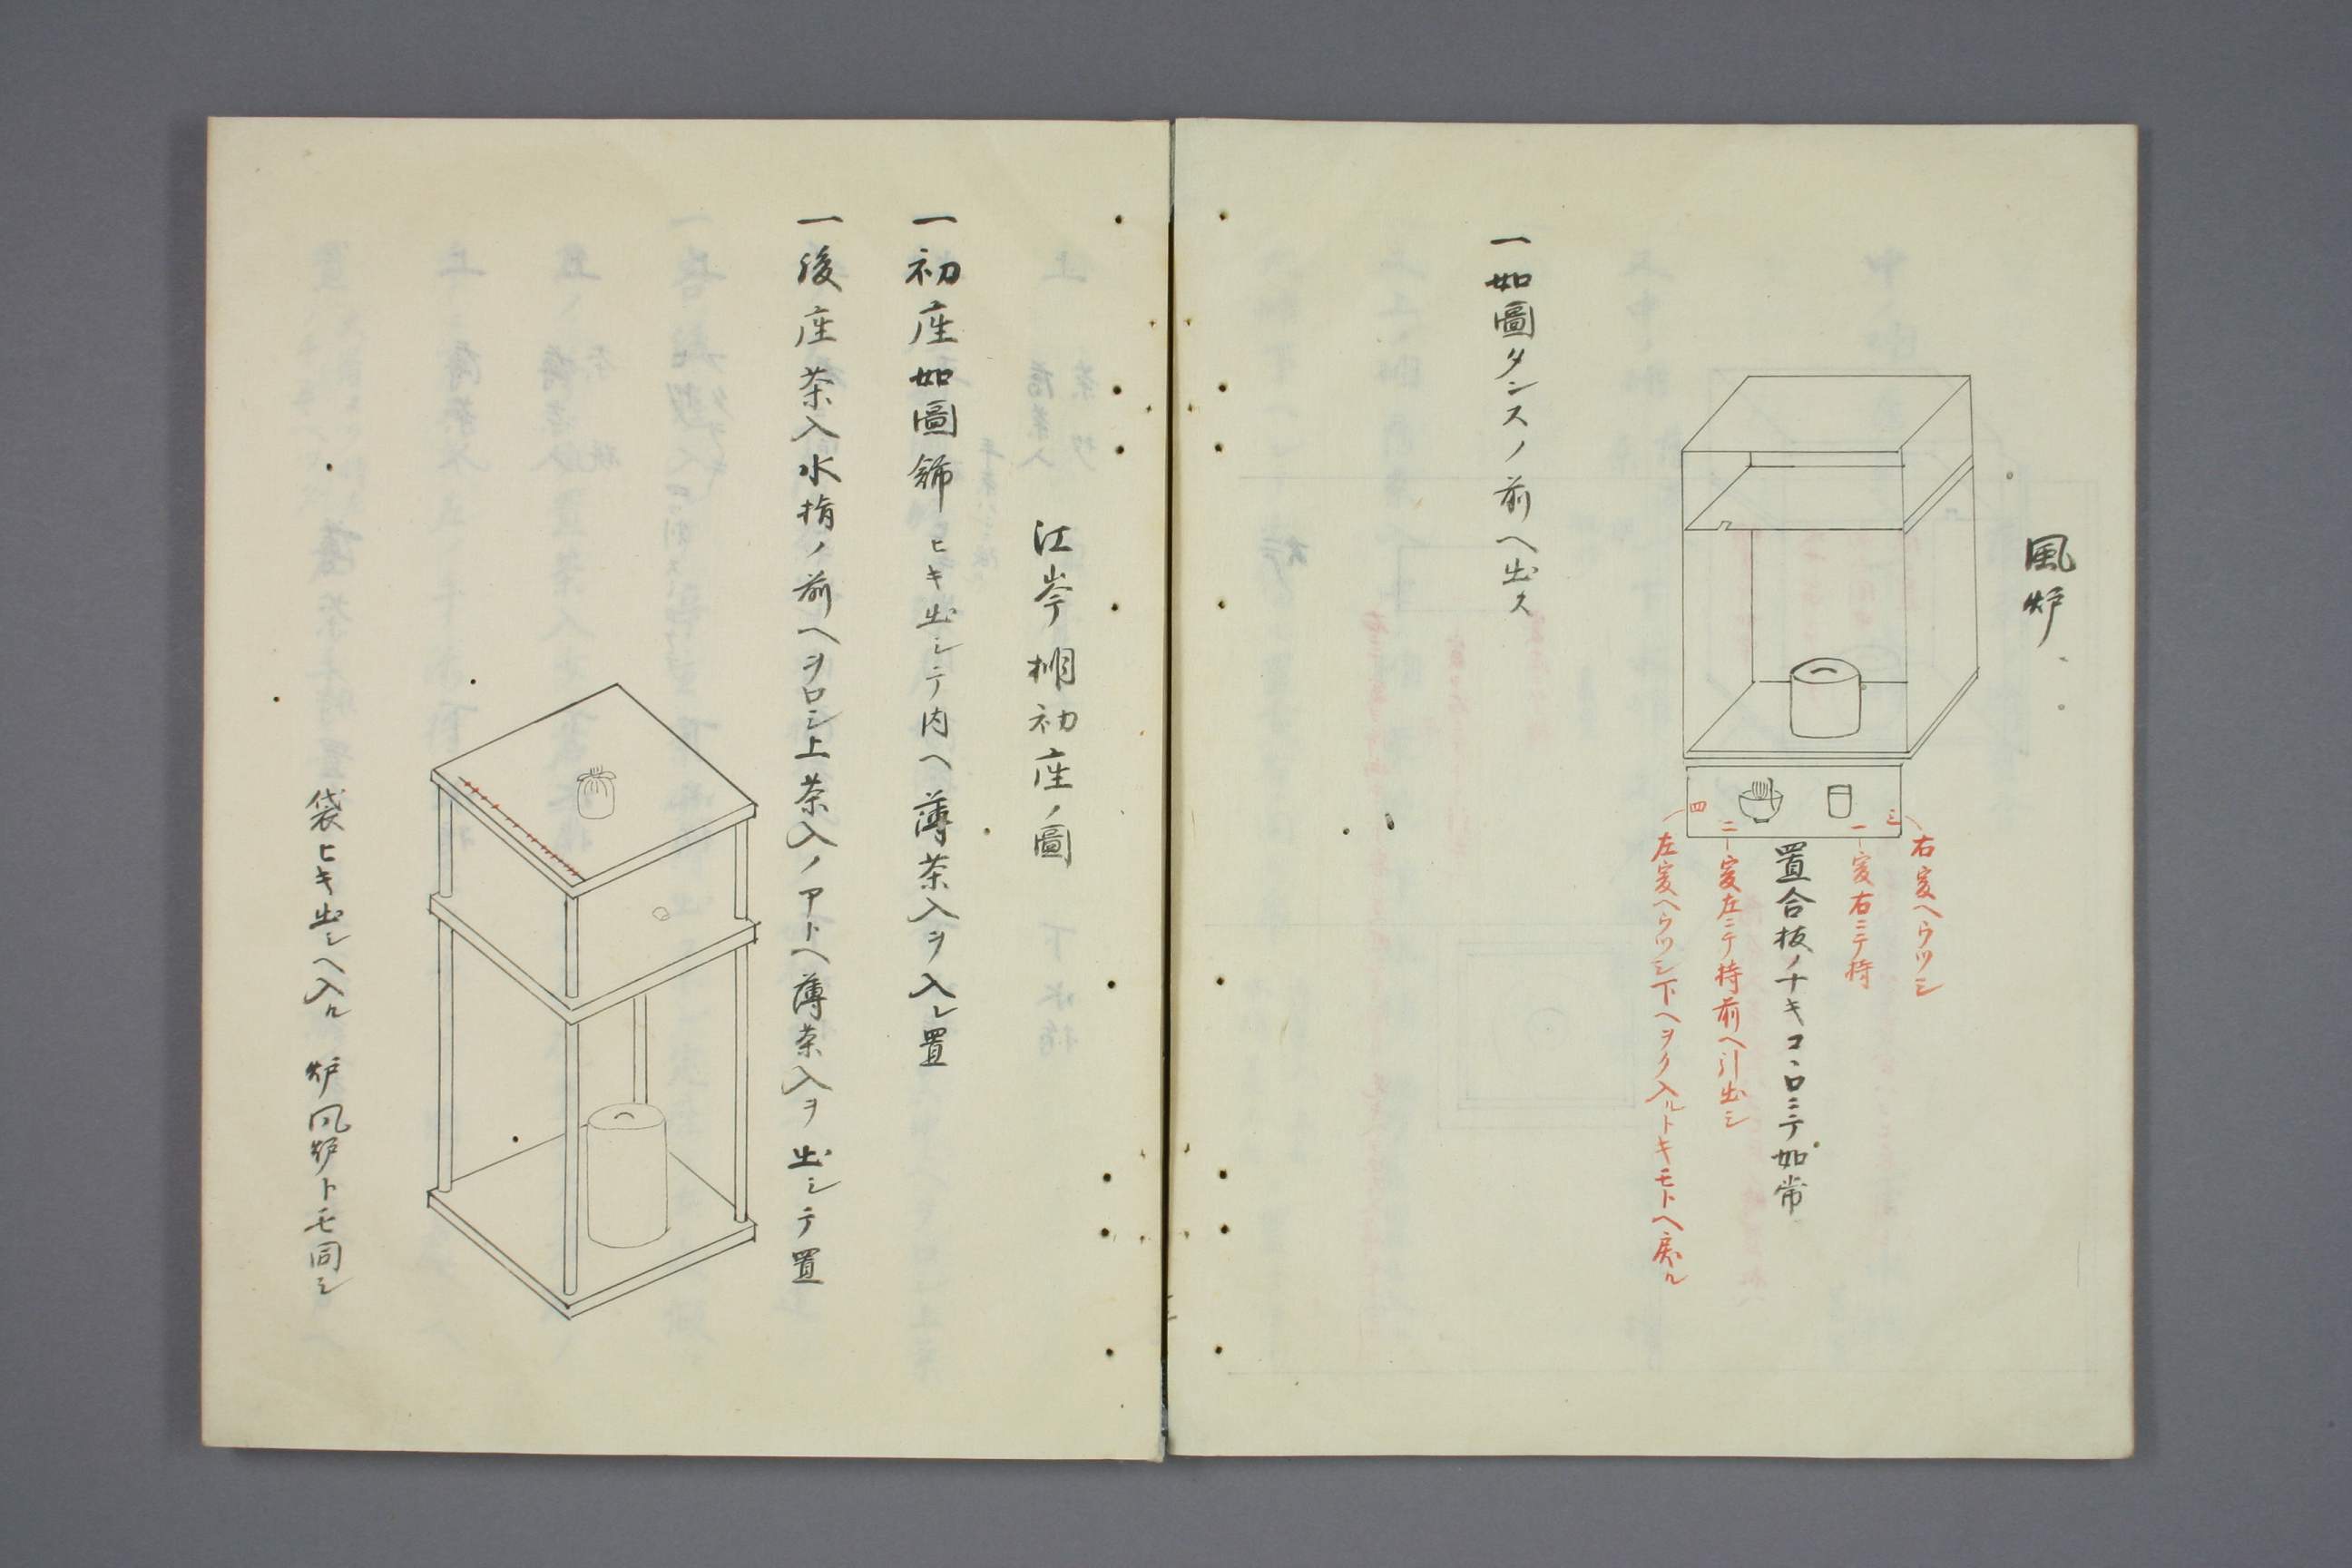 風炉
三
右寅ヘウツシ
一
寅右ニテ持
置合板ノナキコヽロニテ如常
二
寅左ニテ持前ヘ引出シ
四
左寅ヘウツシ下ヘヲク入ルトキモトヘ戻ル
一如圖タンスノ前ヘ出ス
江岑棚初座ノ圖
一初座如圖餝ヒキ出シテ内ヘ薄茶入ヲ入レ置
一後座茶入水指ノ前ヘヲロシ上茶入ノアトヘ薄茶入ヲ出シテ置
袋ヒキ出シヘ入ル 炉風炉トモ同シ